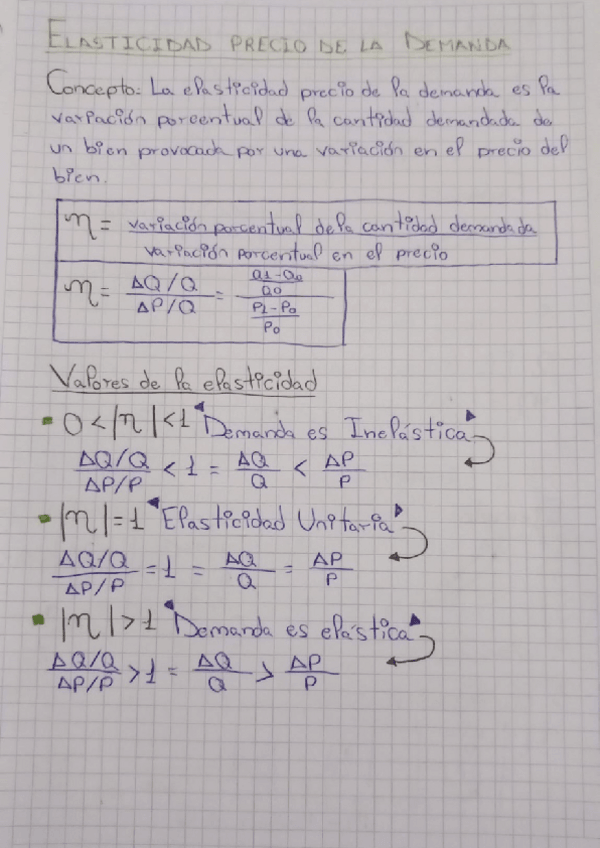 ELASTICIDAD PRECIO DE LA DEMANDA
Concepto: La elasticidad precio de la demanda es la
variación porcentual de la cantidad demandada de
un bien provocada por una variación en el precio del
bien.
η = variación porcentual de la cantidad demandada / variación porcentual en el precio
η = ΔQ/Q / ΔP/Q = Q1-Q0 / Q0 / P1-P0 / P0
Valores de la elasticidad
0 < |η| < 1 "Demanda es Inelástica"
ΔQ/Q / ΔP/P < 1 = ΔQ/Q < ΔP/P
|η| = 1 "Elasticidad Unitaria"
ΔQ/Q / ΔP/P = 1 = ΔQ/Q = ΔP/P
|η| > 1 "Demanda es elástica"
ΔQ/Q / ΔP/P > 1 = ΔQ/Q > ΔP/P